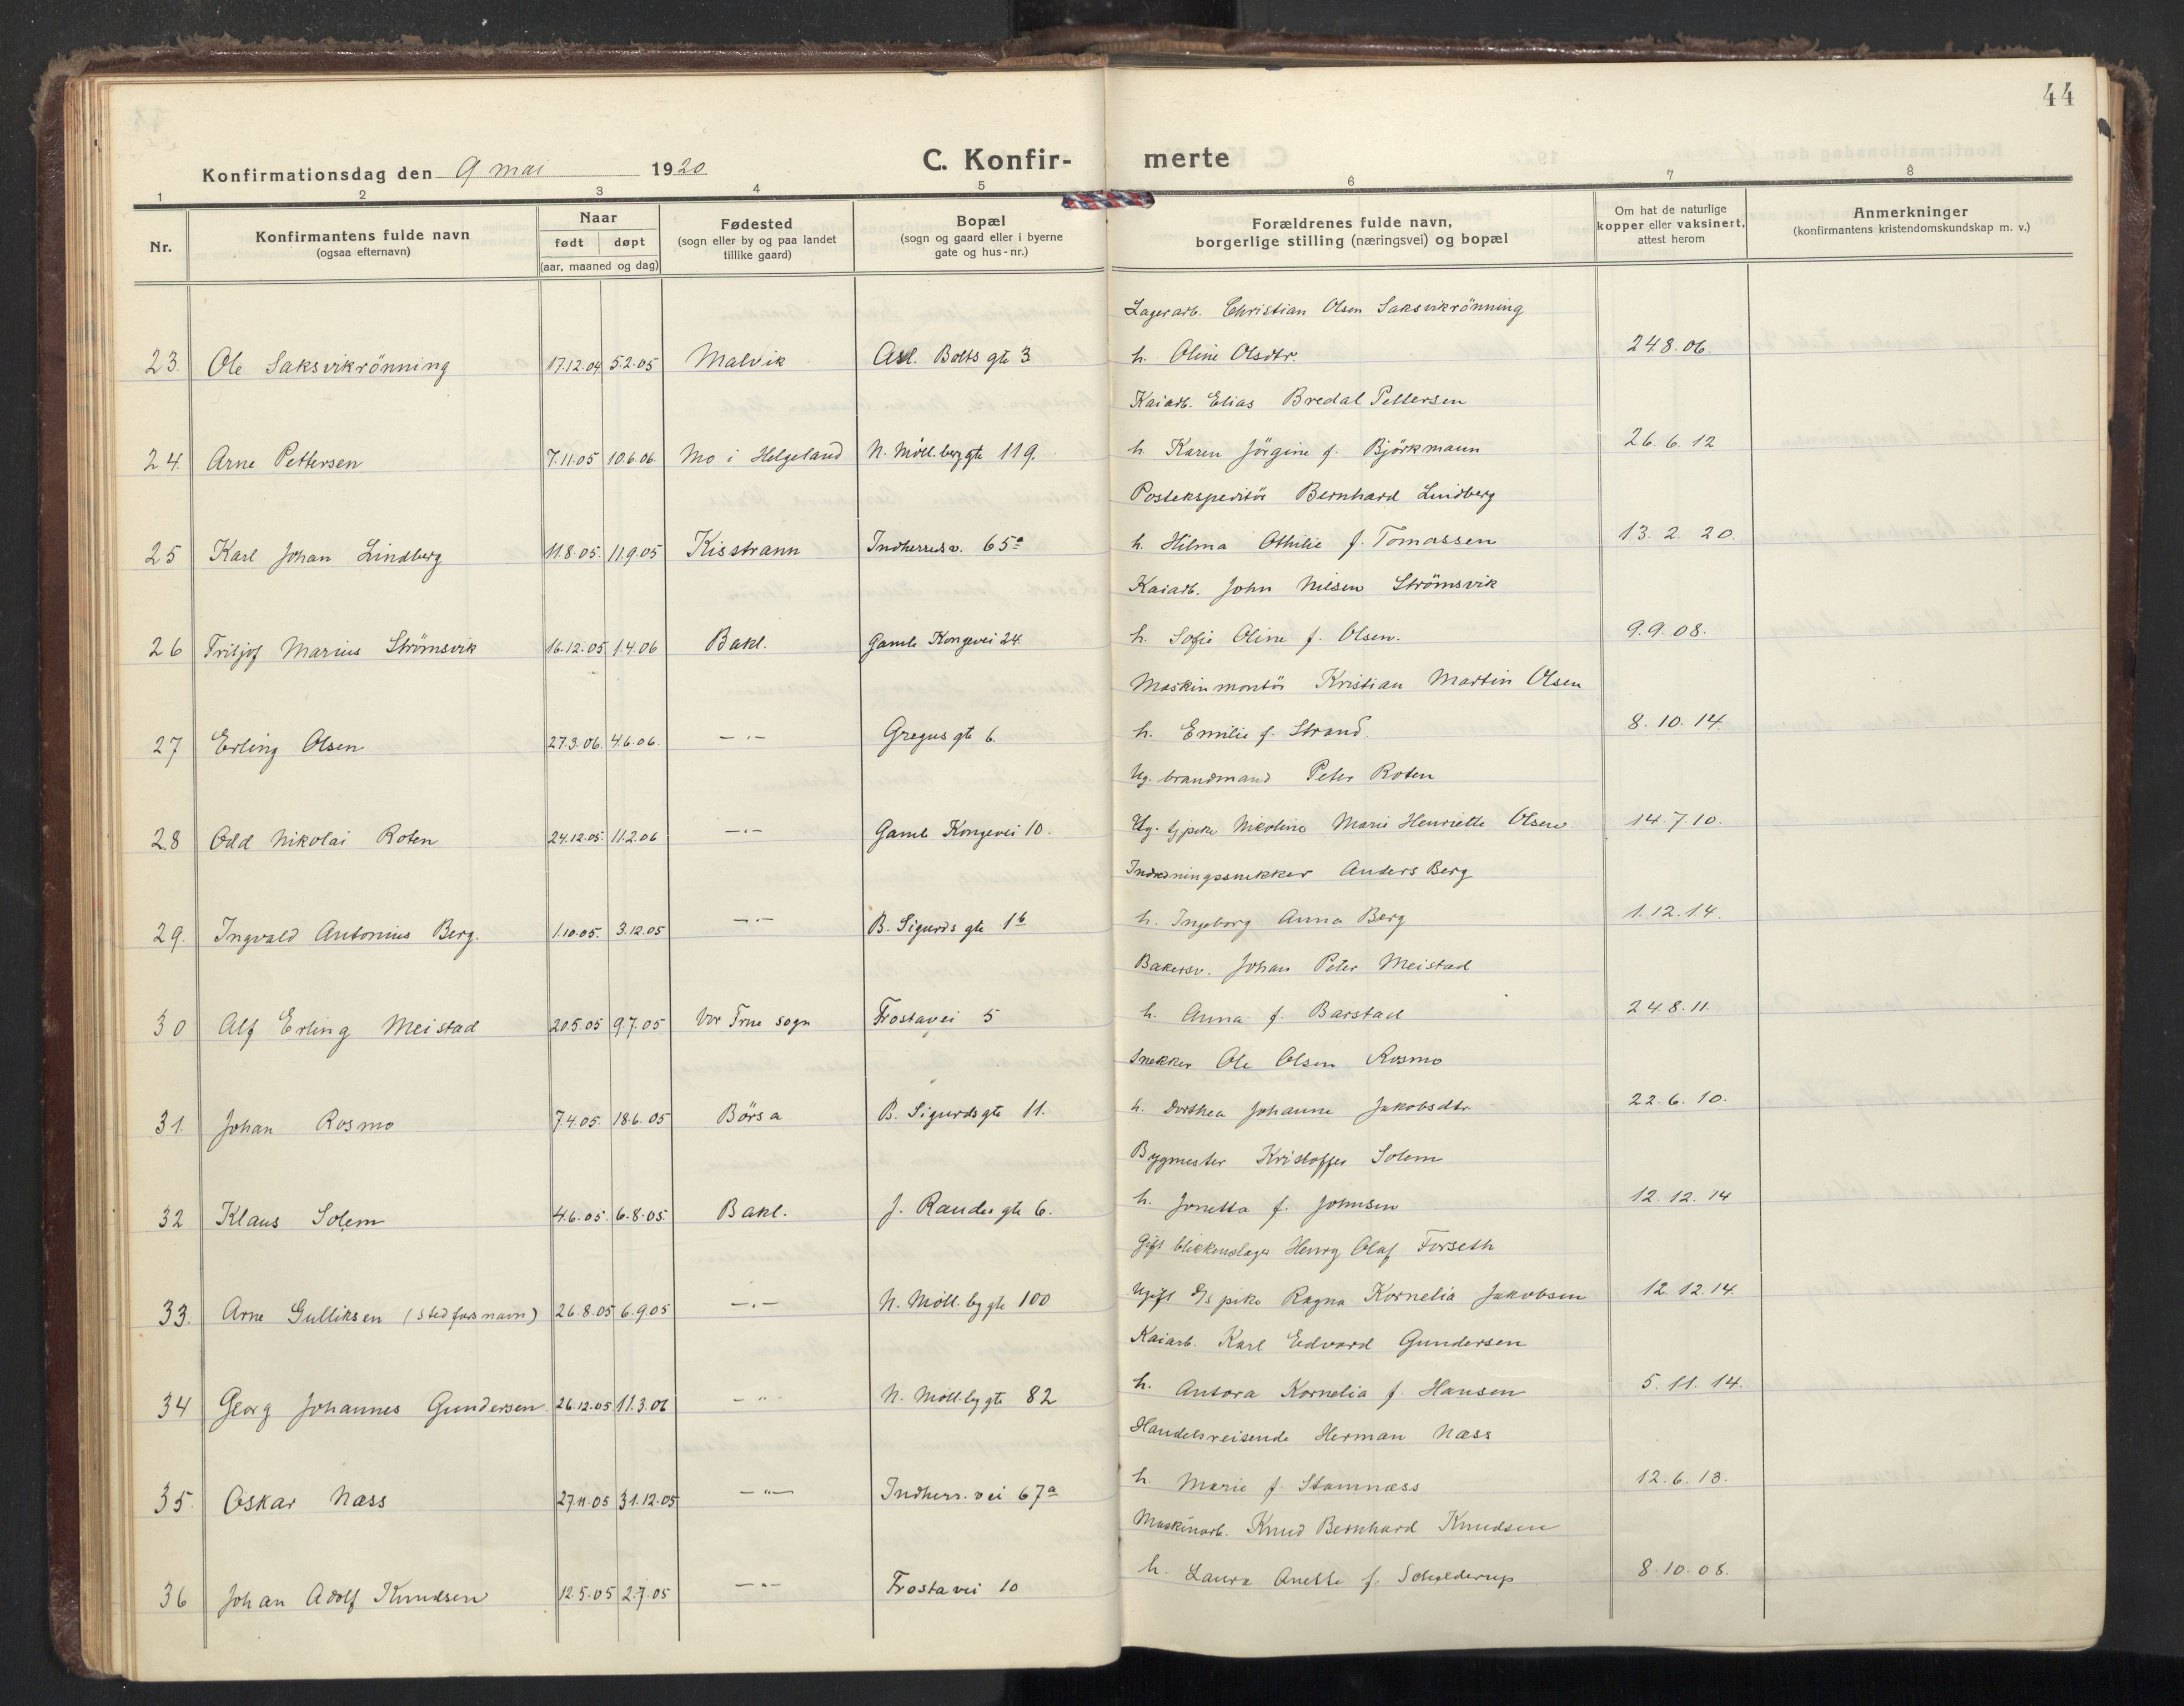 44
Konfirmationsdag den 9 mai 1920
C. Konfir- merte
1 2 3 4 5 6 7 8
Nr.
Konfirmantens fulde navn
(ogsaa efternavn)
Naar
født døpt
(aar, maaned og dag)
Fødested
(sogn eller by og paa landet
tillike gaard)
Bopæl
(sogn og gaard eller i byerne
gate og hus-nr.)
Forældrenes fulde navn,
borgerlige stilling (næringsvei) og bopæl
Om hat de naturlige
kopper eller vaksinert,
attest herom
Anmerkninger
(konfirmantens kristendomskundskap m. v.)
Lagerarb. Christian Olsen Saksvikrönning
23. Ole Saksvikrönning 17.12.04 5.2.05 Malvik Asl. Bolts gt 3 h. Oline Olsdtr. 24.8.06.
Kaiarb. Elias Bredal Pettersen
24. Arne Pettersen 7.11.05 10.6.06. Mo i Helgeland N. Möll.berg gt 119. h. Karen Jörgine f. Björkmann 26.6.12
Postekspeditör Bernhard Lindberg
25 Karl Johan Lindberg 11.8.05. 11.9.05 Kisstrann Indherredsv. 65a h. Hilma Othilie f. Tomassen 13.2.20.
Kaiarb. John Nilsen Strömsvik
26 Fritjof Marius Strömsvik 16.12.05 1.4.06 Bakl. Gamle Kongevei 24. h. Sofie Oline f. Olsen. 9.9.08.
Maskinmontör Kristian Martin Olsen
27 Erling Olsen 27.3.06. 4.6.06. —"— Gregus gt 6. h. Emilie f. Strand. 8.10.14.
Ug. brandmand Peter Roten
28 Odd Nikolai Roten 24.12.05. 11.2.06 —"— Gamle Kongevei 10. Ug. tj.pike Nikoline Marie Henriette Olsen. 14.7.10.
Indredningssnekker Anders Berg
29. Ingvald Antonius Berg. 1.10.05. 3.12.05 —"— B. Sigurds gt 1b h. Ingeborg Anna Berg 1.12.14.
Bakersv. Johan Peter Meistad
30 Alf Erling Meistad 20.5.05 9.7.05 Vor Frue sogn Frostavei 5 h. Anna f. Barstad 24.8.11.
Snekker Ole Olsen Rosmo
31. Johan Rosmo 7.4.05. 18.6.05 Börsa B. Sigurds gt 11. h. Dorthea Johanne Jakobsdtr. 22.6.10.
Bygmester Kristoffer Solem
32 Klaus Solem 4.6.05. 6.8.05. Bakl. J. Randes gt 6. h. Jonetta f. Johnsen 12.12.14
Gift blikkenslager Henry Olaf Forseth
33. Arne Gulliksen (stedfars navn) 26.8.05 6.9.05 —"— N. Möll.bg gt 100 Ugift pike Ragna Kornelia Jakobsen 12.12.14.
Kaiarb. Karl Edvard Gundersen
34 Georg Johannes Gundersen 26.12.05 11.3.06 —"— N. Möll.bg gt 82 h. Antora Kornelia f. Hansen 5.11.14.
Handelsreisende Herman Næss
35. Oskar Næss 27.11.05 31.12.05 —"— Indherr.vei 67a h. Marie f. Stamnæss 12.6.13.
Maskinarb. Knud Bernhard Knudsen
36 Johan Adolf Knudsen 12.5.05 2.7.05 —"— Frostavei 10 h. Laura Anette f. Schjelderup 8.10.08.